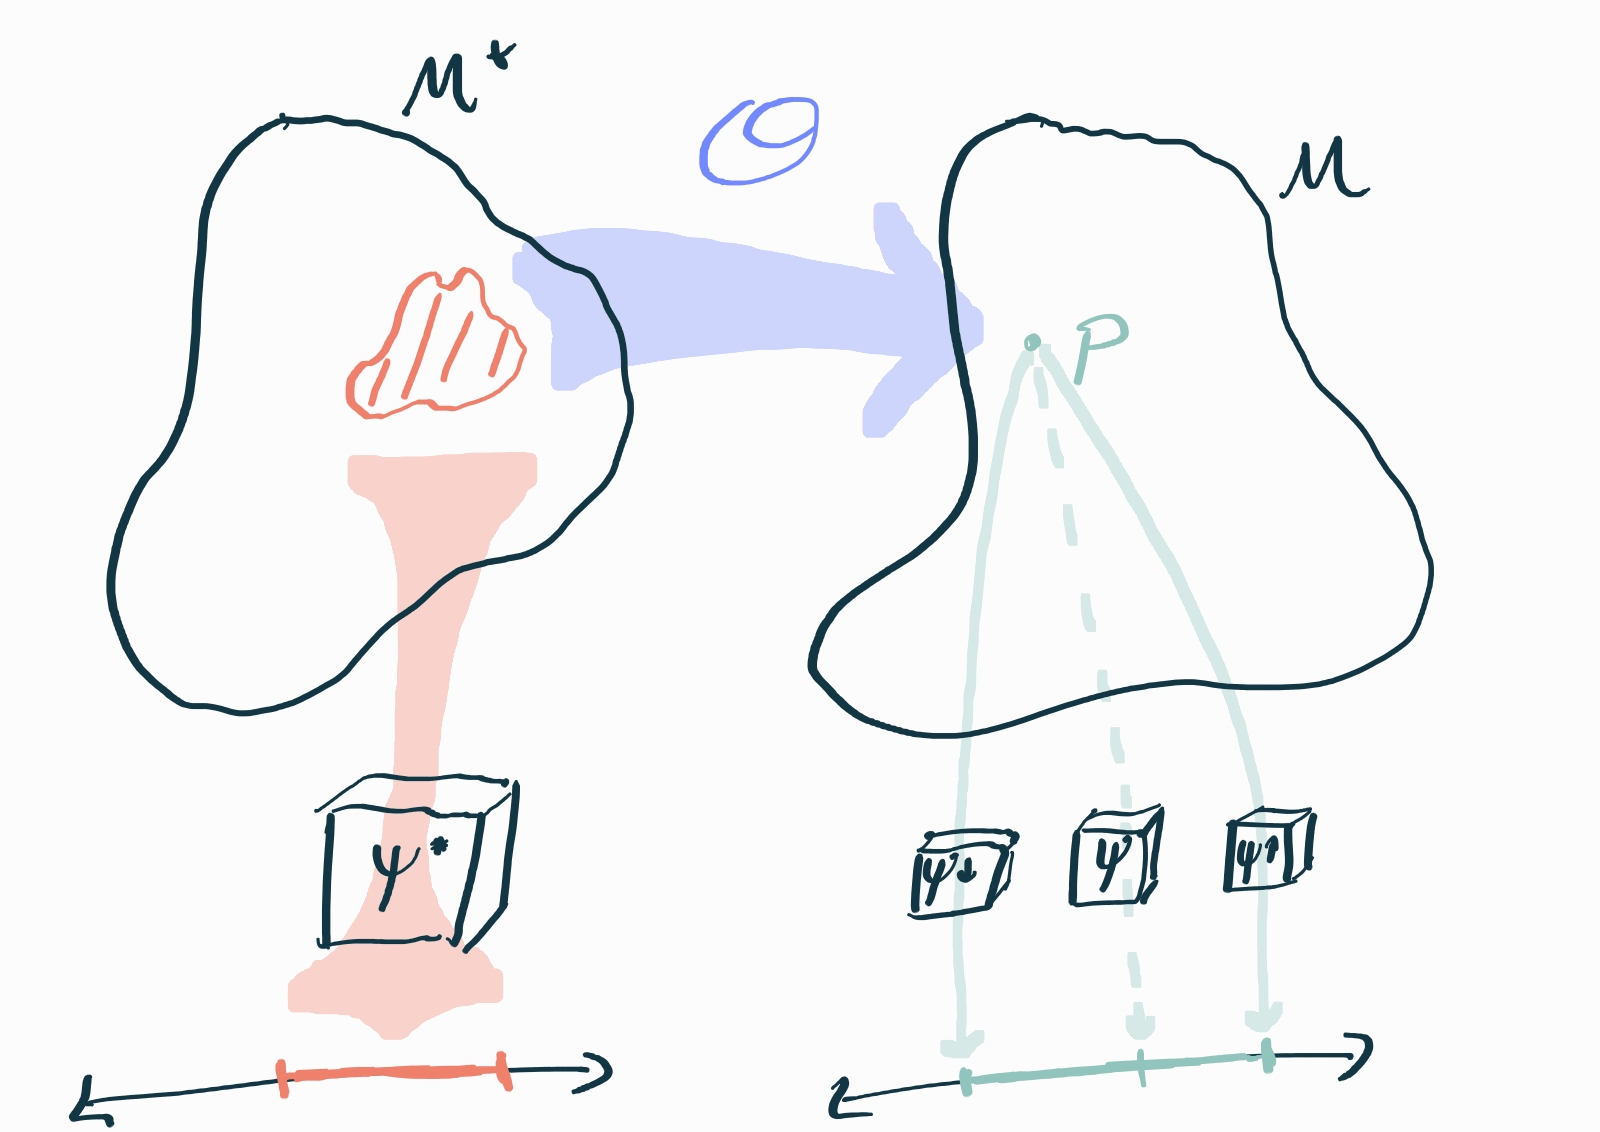 M*
O
M
P
Ψ*
Ψ↓
Ψ
Ψ↑